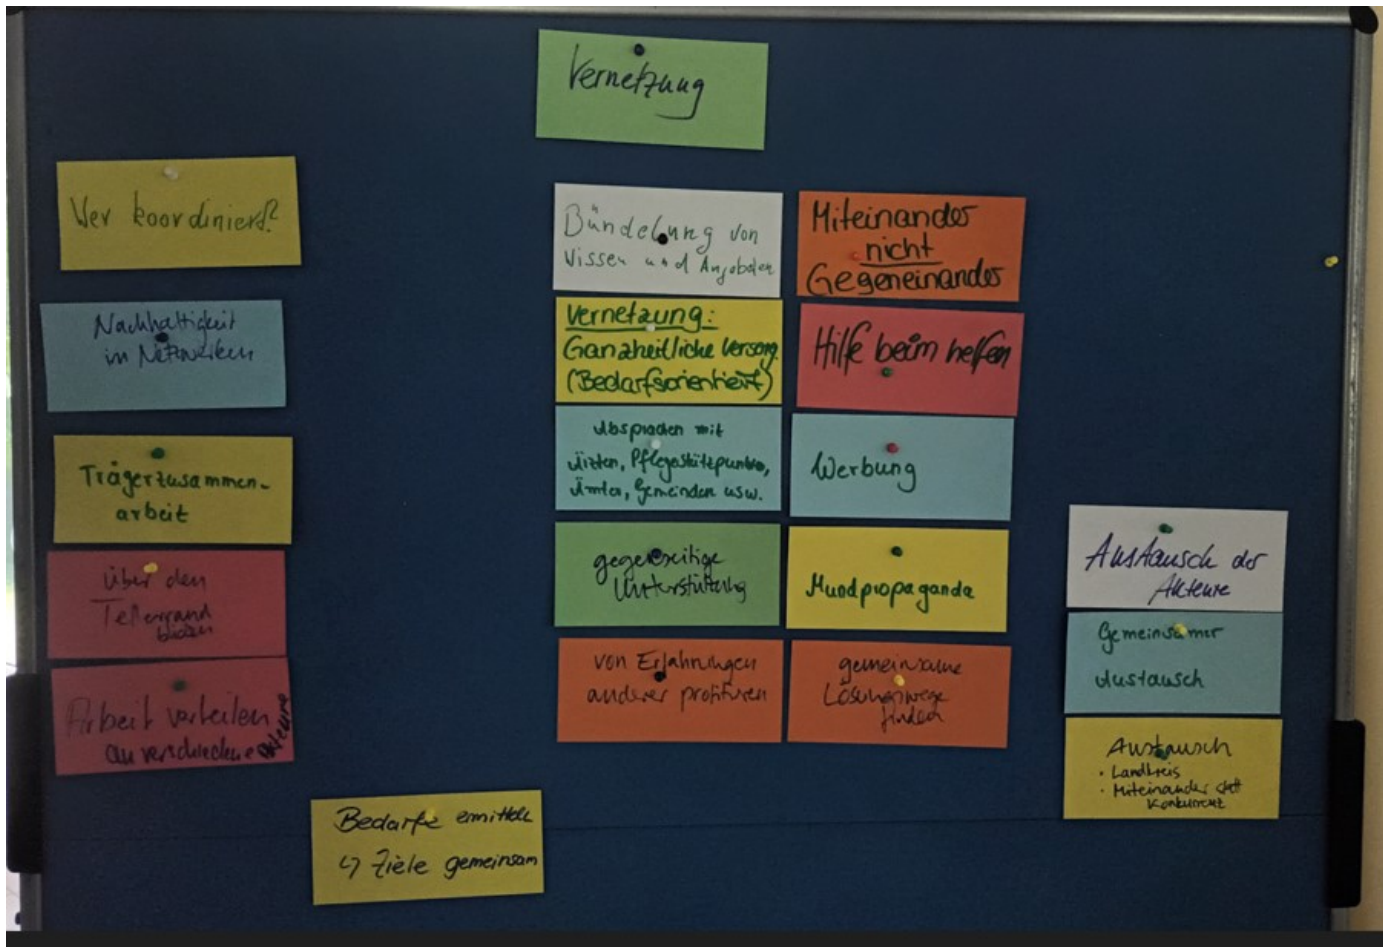 Vernetzung
Wer koordiniert?
Nachhaltigkeit
in Netzwerken
Trägerzusammen-
arbeit
Über den
Tellerrand
Arbeit verteilen
an verschiedene Akteure
Bedarfe ermitteln
↳ Ziele gemeinsam
Bündelung von
Wissen und Angeboten
Vernetzung:
Ganzheitliche Versorg.
(Bedarfsorientiert)
Absprachen mit
Ärzten, Pflegestützpunkte,
Ämter, Gemeinden usw.
gegenseitige
Unterstützung
von Erfahrungen
anderer profitieren
Miteinander
nicht
Gegeneinander
Hilfe beim helfen
Werbung
Mundpropaganda
gemeinsame
Lösungswege
finden
Austausch der
Akteure
Gemeinsamer
Austausch
Austausch
• Landkreis
• Miteinander statt
Konkurrenz